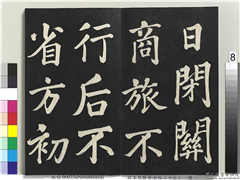 日閉關
商旅不
行后不
省方初
8